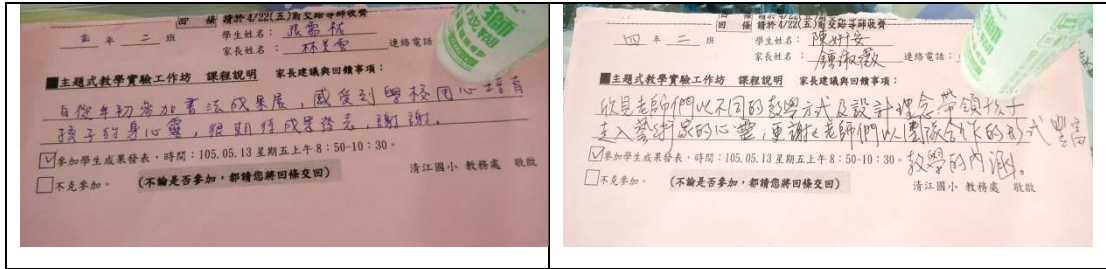 回 條 請於4/22(五)前交給導師收齊
五 年 二 班 學生姓名：張
家長姓名：林美雲 連絡電話
■主題式教學實驗工作坊 課程說明 家長建議與回饋事項：
自從年初參加書法成果展，感受到學校用心培育
孩子的身心靈，很期待成果發表，謝謝。
☑參加學生成果發表，時間：105.05.13 星期五上午 8：50-10：30。
□不克參加。 (不論是否參加，都請您將回條交回) 清江國小 教務處 敬啟
回 條 請於4/22(五)前交給導師收齊
四 年 二 班 學生姓名：陳妤安
家長姓名：鍾淑薇 連絡電話：
■主題式教學實驗工作坊 課程說明 家長建議與回饋事項：
欣見老師們以不同的教學方式及設計理念帶領孩子
走入藝術家的心靈，更謝謝老師們以團隊合作的形式豐富
教學的內涵。
☑參加學生成果發表，時間：105.05.13 星期五上午 8：50-10：30。
□不克參加。 (不論是否參加，都請您將回條交回) 清江國小 教務處 敬啟